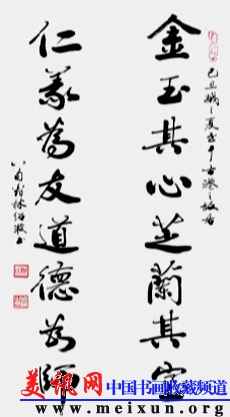 金玉其心芝蘭其室
己丑歲之夏書于古港之
仁義為友道德為師
八旬翁林
美讯网
中国书画收藏频道
www.meixun.org